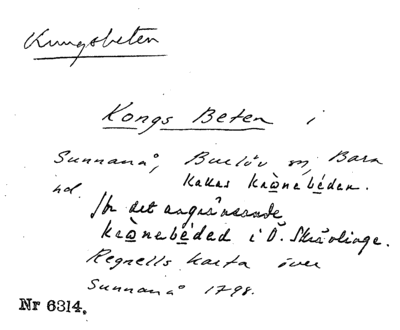 Kungsbeten
Kongs Beten i
Sunnanå, Burlöv sn, Bara
hd. Kallas krònebéden.
Jfr det angränsande
krònebéded i Ö. Skrävlinge.
Regnells karta över
Sunnanå 1798.
Nr 6314.